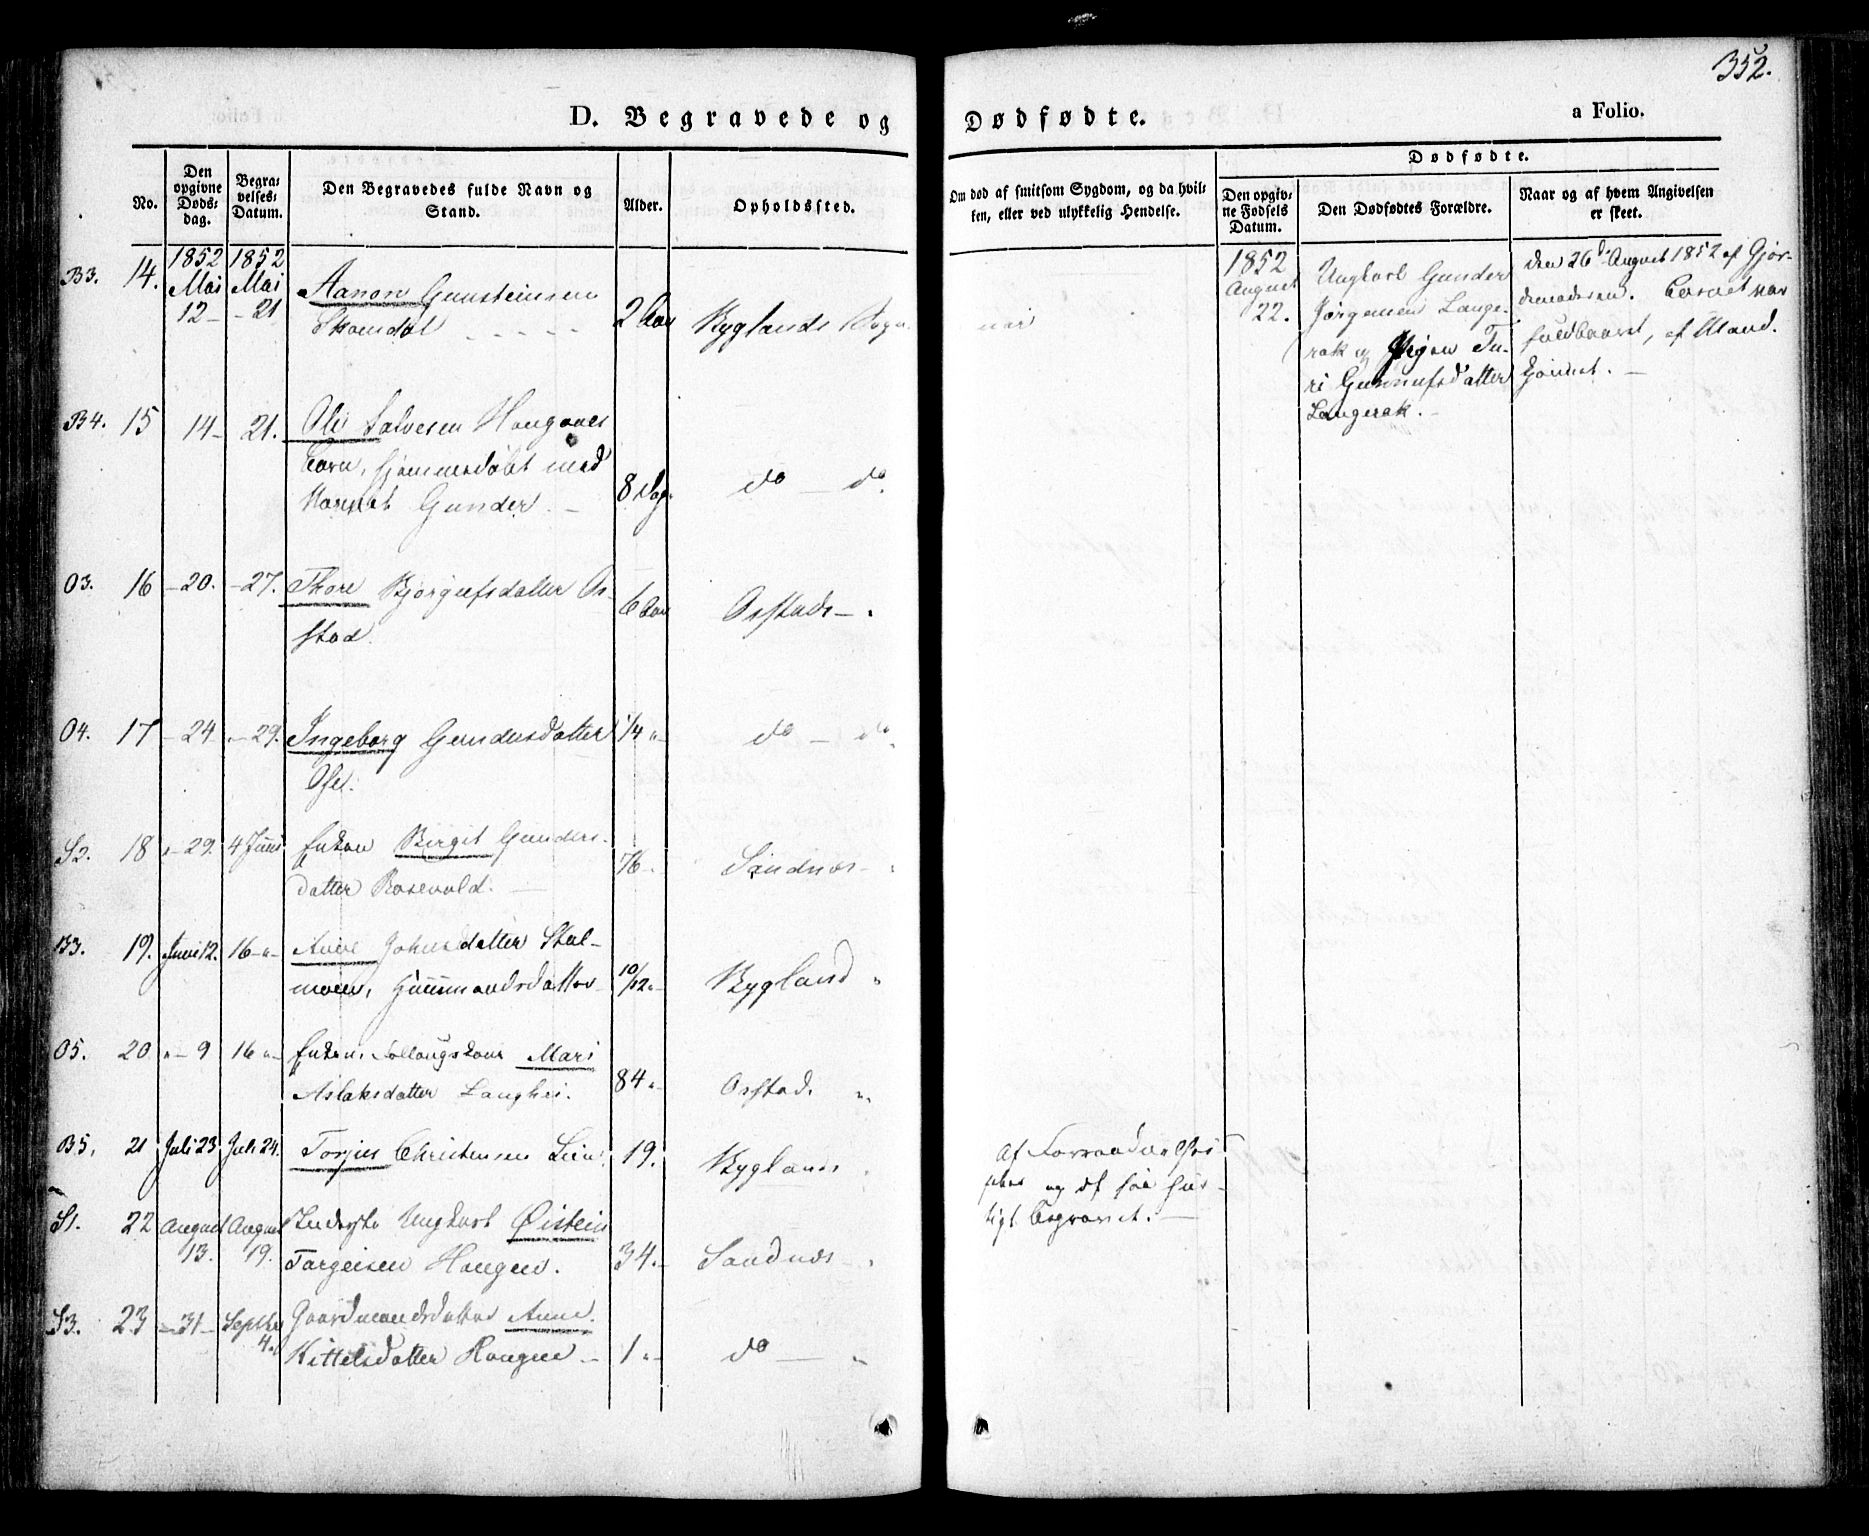 352.
D. Begravede og Dødfødte. a Folio.
No.
Den opgivne Dødsdag.
Begravelses-Datum.
Den Begravedes fulde Navn og Stand.
Alder.
Opholdssted.
Om død af smitsom Sygdom, og da hvilken, eller ved ulykkelig Hendelse.
Dødfødte.
Den opgivne Fødsels Datum.
Den Dødfødtes Forældre.
Naar og af hvem Angivelsen er skeet.
B3. 14. 1852 Mai 12 1852 Mai 21 Aanon Gunsteinsen
Skomdal 2 Aar Byglands Sogn
B4. 15 14 21. Ole Salvesen Haugnes
Barn, hjemmedøbt med
Navnet Gunder. 8 Dage do do
O3. 16 20. 27. Thore Bjorgufsdatter Os-
stad. 6 Aar Osstads
O4. 17 24 29. Ingeborg Gundersdatter
Ose. 1/4 do do
S2. 18 29. 4 Juni Enken Birgit Gunders-
datter Rosevold. 76 Sandnæs
B3. 19. Juni 12. 16 Anne Johnsdatter Stal-
moen, Huusmandsdatter 10/12 Bygland
O5. 20 9 16 Enken, Mari
Aslaksdatter Langhei. 84 Osstad
B5. 21 Juli 23 Juli 24. Torjus Christensen Lien 19. Byglands
Af
og
begravet.
S1. 22 August 13. August 19. Ungkarl Øistein
Torgeisen Haugen. 34. Sandnæs
S3. 23 31 Septbr 4 Gaardmandsdatter Anne
Kittelsdatter Haugen 1 do
1852 August 22.
Ungkarl Gunder
Jørgensen Lange-
rak og Pigen Tu-
ri Gunnufsdatter
Langerak.
den 26d August 1852 af Gjor-
demoderen. Barnet var
fuldbaaret, af Mand-
kjønnet.